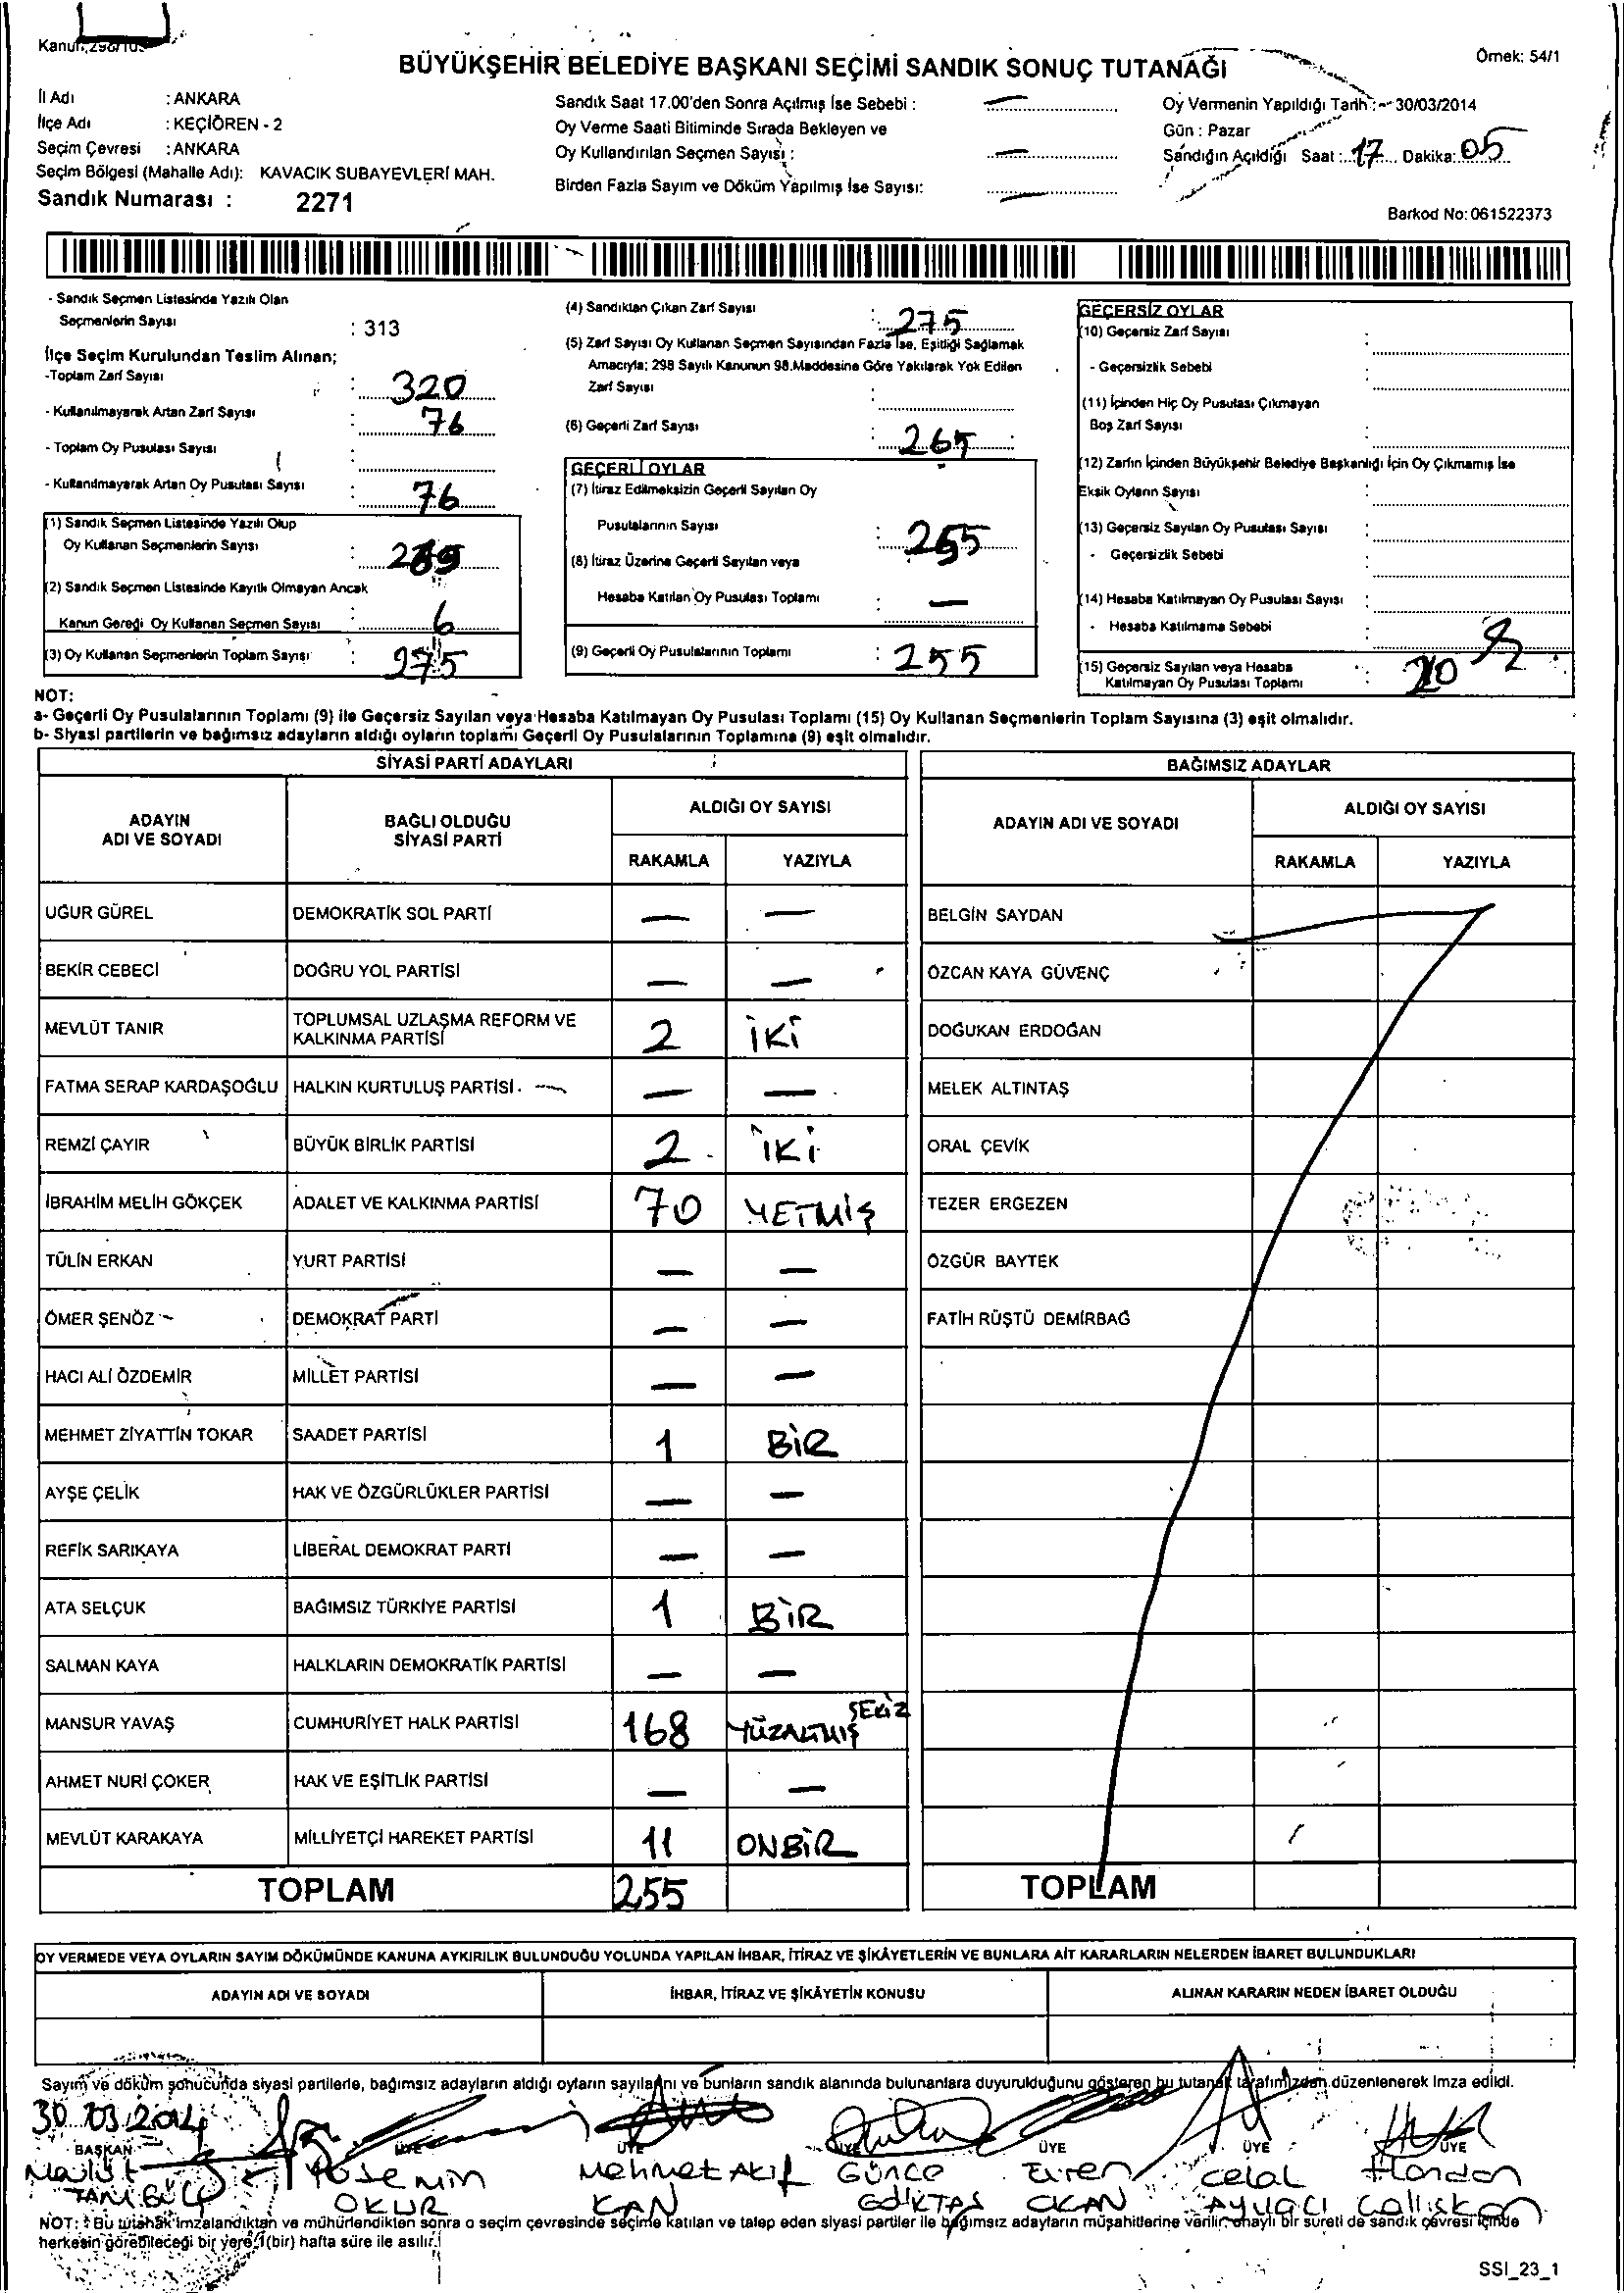 Kanun:298/103
Örnek: 54/1
BÜYÜKŞEHİR BELEDİYE BAŞKANI SEÇİMİ SANDIK SONUÇ TUTANAĞI
İl Adı : ANKARA
İlçe Adı : KEÇİÖREN - 2
Seçim Çevresi : ANKARA
Seçim Bölgesi (Mahalle Adı): KAVACIK SUBAYEVLERİ MAH.
Sandık Numarası : 2271
Sandık Saat 17.00'den Sonra Açılmış İse Sebebi : —
Oy Verme Saati Bitiminde Sırada Bekleyen ve
Oy Kullandırılan Seçmen Sayısı : —
Birden Fazla Sayım ve Döküm Yapılmış İse Sayısı: —
Oy Vermenin Yapıldığı Tarih : 30/03/2014
Gün : Pazar
Sandığın Açıldığı Saat : 17 Dakika: 05
Barkod No: 061522373
- Sandık Seçmen Listesinde Yazılı Olan
Seçmenlerin Sayısı : 313
İlçe Seçim Kurulundan Teslim Alınan;
-Toplam Zarf Sayısı : 320
- Kullanılmayarak Artan Zarf Sayısı : 76
- Toplam Oy Pusulası Sayısı :
- Kullanılmayarak Artan Oy Pusulası Sayısı : 76
(1) Sandık Seçmen Listesinde Yazılı Olup
Oy Kullanan Seçmenlerin Sayısı : 269
(2) Sandık Seçmen Listesinde Kayıtlı Olmayan Ancak
Kanun Gereği Oy Kullanan Seçmen Sayısı : 6
(3) Oy Kullanan Seçmenlerin Toplam Sayısı : 275
(4) Sandıktan Çıkan Zarf Sayısı : 275
(5) Zarf Sayısı Oy Kullanan Seçmen Sayısından Fazla İse, Eşitliği Sağlamak
Amacıyla; 298 Sayılı Kanunun 98.Maddesine Göre Yakılarak Yok Edilen
Zarf Sayısı :
(6) Geçerli Zarf Sayısı : 265
GEÇERLİ OYLAR
(7) İtiraz Edilmeksizin Geçerli Sayılan Oy
Pusulalarının Sayısı : 255
(8) İtiraz Üzerine Geçerli Sayılan veya
Hesaba Katılan Oy Pusulası Toplamı : —
(9) Geçerli Oy Pusulalarının Toplamı : 255
GEÇERSİZ OYLAR
(10) Geçersiz Zarf Sayısı :
- Geçersizlik Sebebi :
(11) İçinden Hiç Oy Pusulası Çıkmayan
Boş Zarf Sayısı :
(12) Zarfın İçinden Büyükşehir Belediye Başkanlığı İçin Oy Çıkmamış İse
Eksik Oyların Sayısı :
(13) Geçersiz Sayılan Oy Pusulası Sayısı :
- Geçersizlik Sebebi :
(14) Hesaba Katılmayan Oy Pusulası Sayısı :
- Hesaba Katılmama Sebebi :
(15) Geçersiz Sayılan veya Hesaba
Katılmayan Oy Pusulası Toplamı : 20
NOT:
a- Geçerli Oy Pusulalarının Toplamı (9) ile Geçersiz Sayılan veya Hesaba Katılmayan Oy Pusulası Toplamı (15) Oy Kullanan Seçmenlerin Toplam Sayısına (3) eşit olmalıdır.
b- Siyasi partilerin ve bağımsız adayların aldığı oyların toplamı Geçerli Oy Pusulalarının Toplamına (9) eşit olmalıdır.
SİYASİ PARTİ ADAYLARI
ADAYIN ADI VE SOYADI BAĞLI OLDUĞU SİYASİ PARTİ ALDIĞI OY SAYISI
RAKAMLA YAZIYLA
UĞUR GÜREL DEMOKRATİK SOL PARTİ — —
BEKİR CEBECİ DOĞRU YOL PARTİSİ — —
MEVLÜT TANIR TOPLUMSAL UZLAŞMA REFORM VE KALKINMA PARTİSİ 2 İKİ
FATMA SERAP KARDAŞOĞLU HALKIN KURTULUŞ PARTİSİ — —
REMZİ ÇAYIR BÜYÜK BİRLİK PARTİSİ 2 İKİ
İBRAHİM MELİH GÖKÇEK ADALET VE KALKINMA PARTİSİ 70 YETMİŞ
TÜLİN ERKAN YURT PARTİSİ — —
ÖMER ŞENÖZ DEMOKRAT PARTİ — —
HACI ALİ ÖZDEMİR MİLLET PARTİSİ — —
MEHMET ZİYATTİN TOKAR SAADET PARTİSİ 1 BİR
AYŞE ÇELİK HAK VE ÖZGÜRLÜKLER PARTİSİ — —
REFİK SARIKAYA LİBERAL DEMOKRAT PARTİ — —
ATA SELÇUK BAĞIMSIZ TÜRKİYE PARTİSİ 1 BİR
SALMAN KAYA HALKLARIN DEMOKRATİK PARTİSİ — —
MANSUR YAVAŞ CUMHURİYET HALK PARTİSİ 168 YÜZALTMIŞ SEKİZ
AHMET NURİ ÇOKER HAK VE EŞİTLİK PARTİSİ — —
MEVLÜT KARAKAYA MİLLİYETÇİ HAREKET PARTİSİ 11 ONBİR
TOPLAM 255
BAĞIMSIZ ADAYLAR
ADAYIN ADI VE SOYADI ALDIĞI OY SAYISI
RAKAMLA YAZIYLA
BELGİN SAYDAN
ÖZCAN KAYA GÜVENÇ
DOĞUKAN ERDOĞAN
MELEK ALTINTAŞ
ORAL ÇEVİK
TEZER ERGEZEN
ÖZGÜR BAYTEK
FATİH RÜŞTÜ DEMİRBAĞ
TOPLAM
OY VERMEDE VEYA OYLARIN SAYIM DÖKÜMÜNDE KANUNA AYKIRILIK BULUNDUĞU YOLUNDA YAPILAN İHBAR, İTİRAZ VE ŞİKÂYETLERİN VE BUNLARA AİT KARARLARIN NELERDEN İBARET BULUNDUKLARI
ADAYIN ADI VE SOYADI İHBAR, İTİRAZ VE ŞİKÂYETİN KONUSU ALINAN KARARIN NEDEN İBARET OLDUĞU
Sayım ve döküm sonucunda siyasi partilerle, bağımsız adayların aldığı oyların sayılarını ve bunların sandık alanında bulunanlara duyurulduğunu gösteren bu tutanak tarafımızdan düzenlenerek imza edildi.
30.03.2014
BAŞKAN ÜYE ÜYE ÜYE ÜYE ÜYE ÜYE
Mehmet Akif Günce Evren Celal Handan
OKUR KAN GÖKTAŞ Çalışkan
NOT: Bu tutanak imzalandıktan ve mühürlendikten sonra o seçim çevresinde seçime katılan ve talep eden siyasi partiler ile bağımsız adayların müşahitlerine verilir, onaylı bir sureti de sandık çevresi içinde
herkesin görebileceği bir yere 1(bir) hafta süre ile asılır.
SSI_23_1